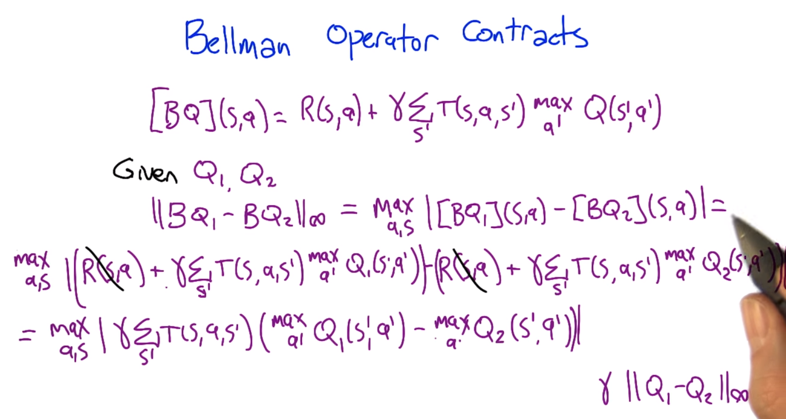 Bellman Operator Contracts
[BQ](s,a) = R(s,a) + γ Σ_s' T(s,a,s') max_a' Q(s',a')
Given Q₁, Q₂
||BQ₁ - BQ₂||∞ = max_a,s |[BQ₁](s,a) - [BQ₂](s,a)| =
max_a,s |(R(s,a) + γ Σ_s' T(s,a,s') max_a' Q₁(s',a')) - (R(s,a) + γ Σ_s' T(s,a,s') max_a' Q₂(s',a'))|
= max_a,s |γ Σ_s' T(s,a,s') (max_a' Q₁(s',a') - max_a' Q₂(s',a'))|
γ ||Q₁ - Q₂||∞